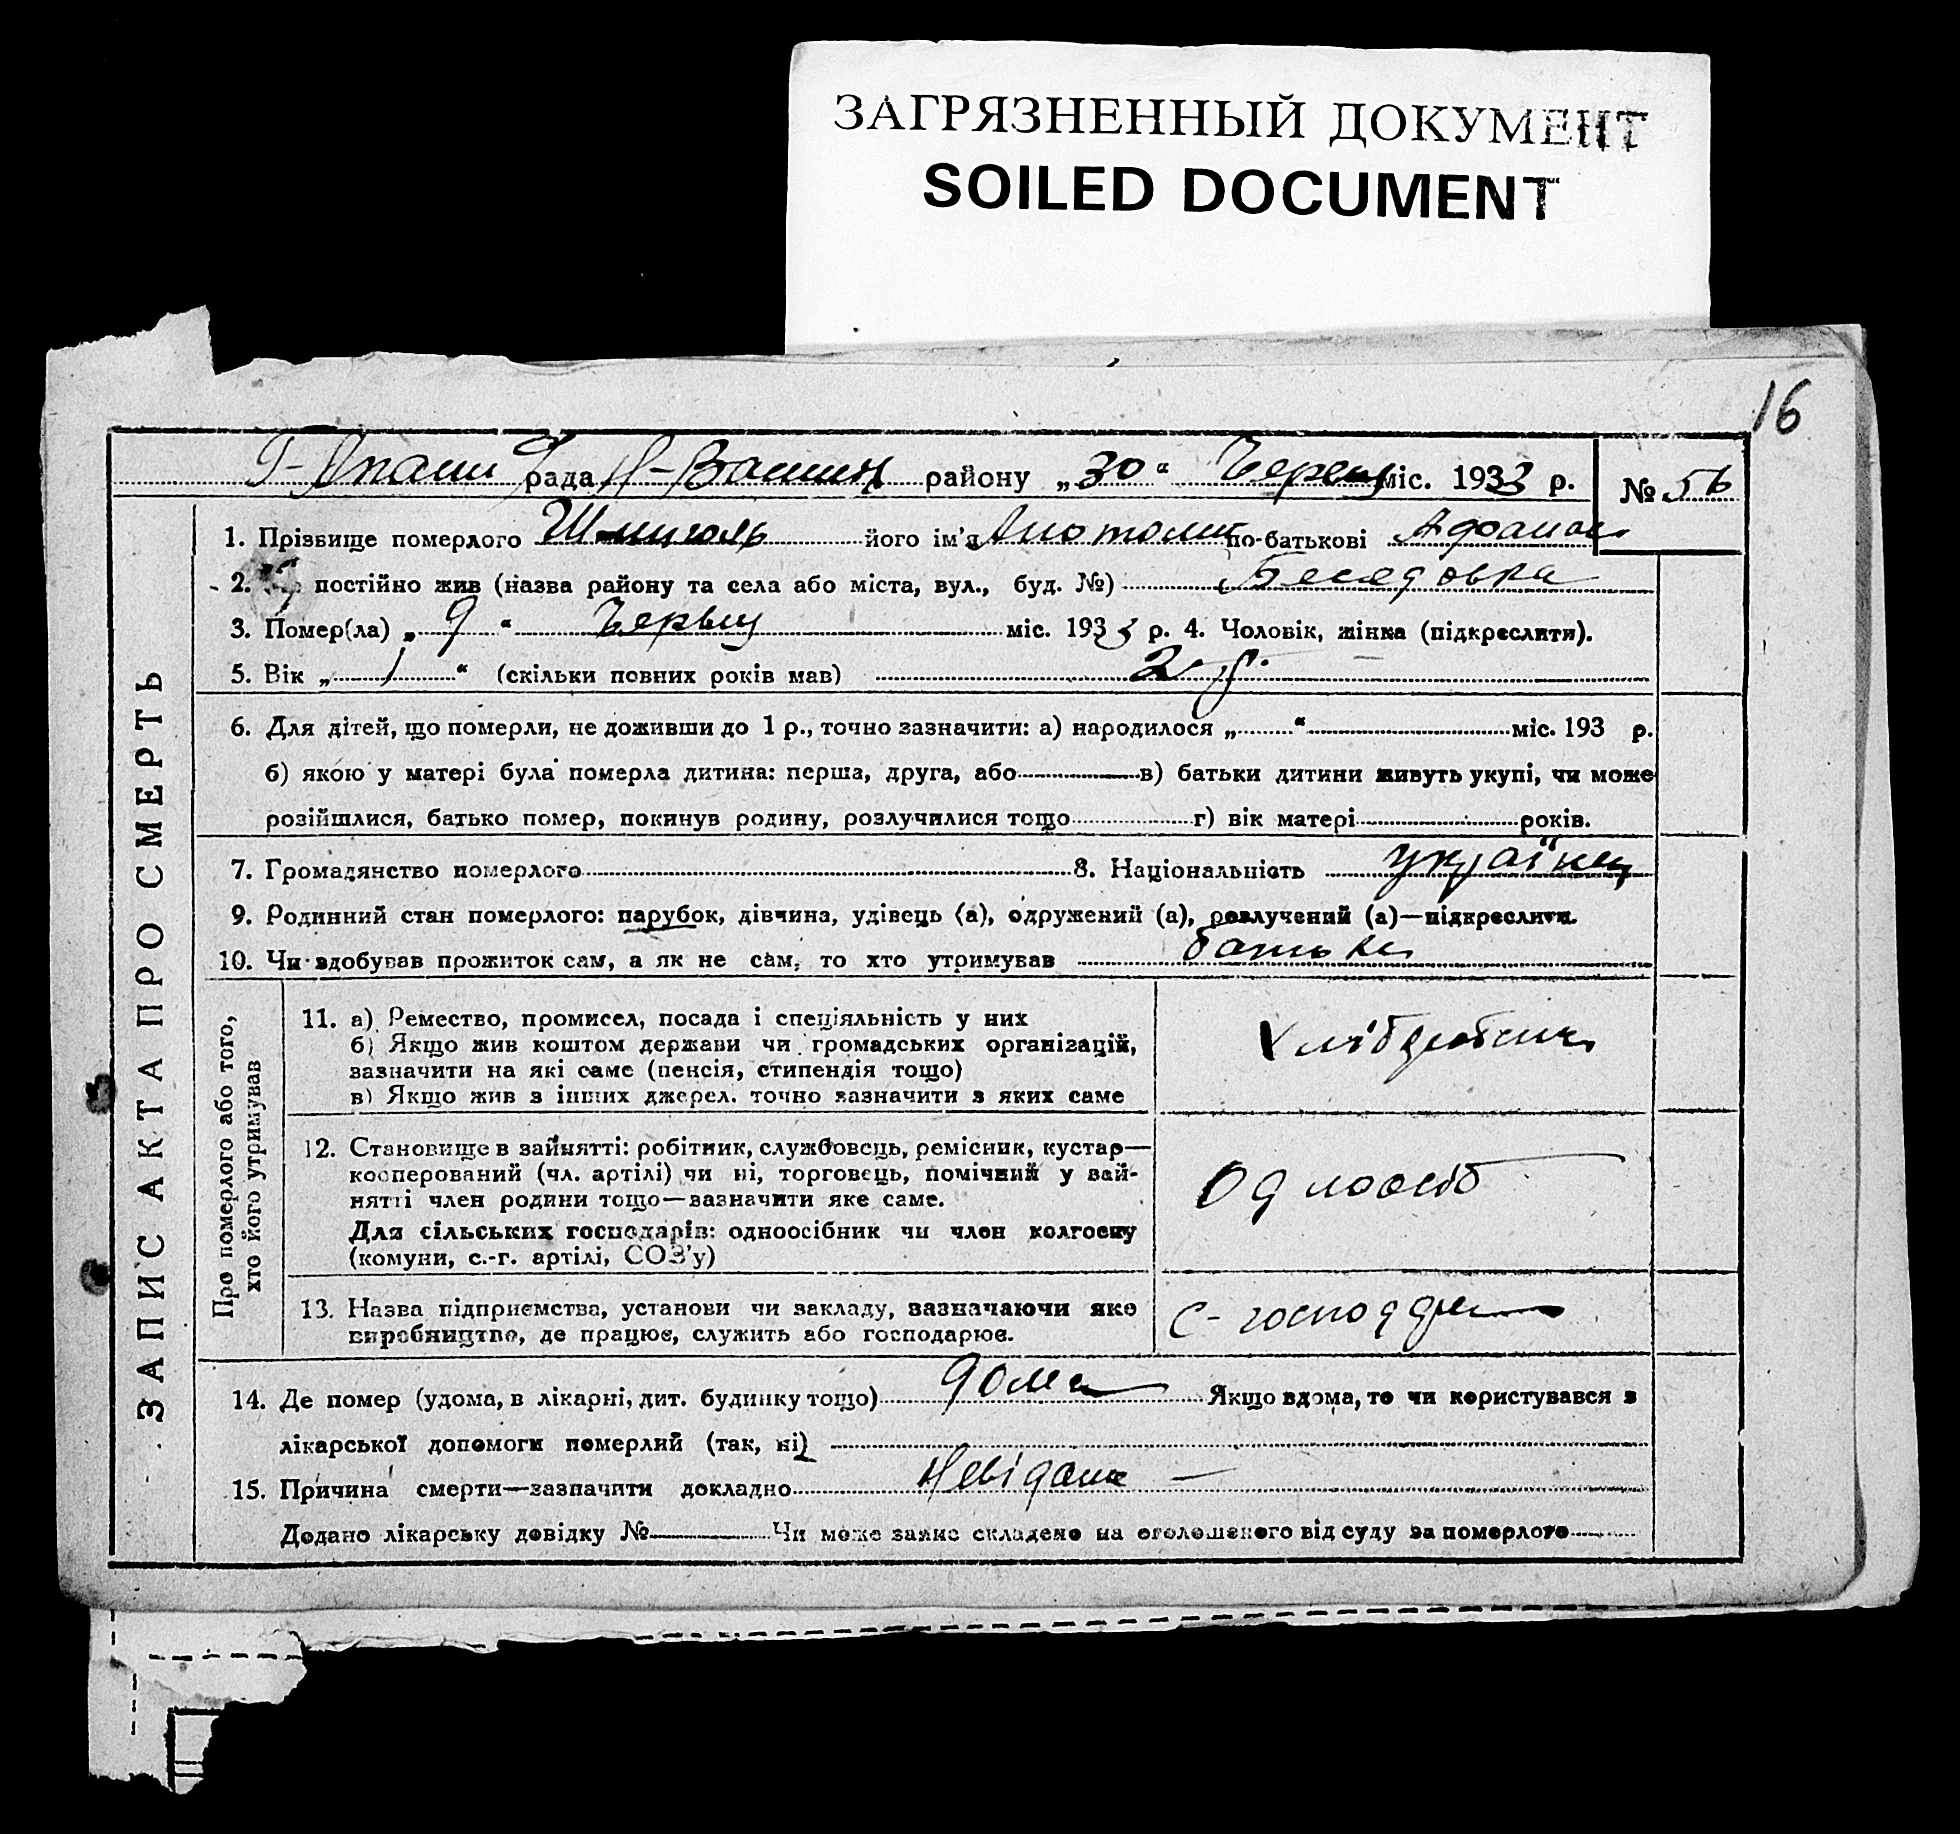 ЗАГРЯЗНЕННЫЙ ДОКУМЕНТ
SOILED DOCUMENT
16
рада району „30“ міс. 1933 р. № 56
1. Прізвище померлого його ім'я по-батькові
2. постійно жив (назва району та села або міста, вул., буд. №) Беседовка
3. Помер(ла) „9“ міс. 1933 р. 4. Чоловік, жінка (підкреслити).
5. Вік „1“ (скільки повних років мав) 2 р.
6. Для дітей, що померли, не доживши до 1 р., точно зазначити: а) народилося „ “ міс. 193 р.
б) якою у матері була померла дитина: перша, друга, або в) батьки дитини живуть укупі, чи може
розійшлися, батько помер, покинув родину, розлучилися тощо г) вік матері років.
7. Громадянство померлого 8. Національність українец
9. Родинний стан померлого: парубок, дівчина, удівець (а), одружений (а), розлучений (а)—підкреслити.
10. Чи здобував прожиток сам, а як не сам, то хто утримував батьки
ЗАПИС АКТА ПРО СМЕРТЬ
Про померлого або того,
хто його утримував
11. а) Ремество, промисел, посада і спеціяльність у них
б) Якщо жив коштом держави чи громадських організацій,
зазначити на які саме (пенсія, стипендія тощо)
в) Якщо жив з інших джерел. точно зазначити з яких саме
12. Становище в зайнятті: робітник, службовець, ремісник, кустар—
кооперований (чл. артілі) чи ні, торговець, помічний у зай-
нятті член родини тощо—зазначити яке саме.
Для сільських господарів: одноосібник чи член колгоспу
(комуни, с.-г. артілі, СОЗ'у)
Одноосіб
13. Назва підприємства, установи чи закладу, зазначаючи яке
виробництво, де працює, служить або господарює.
14. Де помер (удома, в лікарні, дит. будинку тощо) дома Якщо вдома, то чи користувався з
лікарської допомоги померлий (так, ні)
15. Причина смерти—зазначити докладно Невідома —
Додано лікарську довідку № Чи може запис складено на оголошеного від суду за померлого